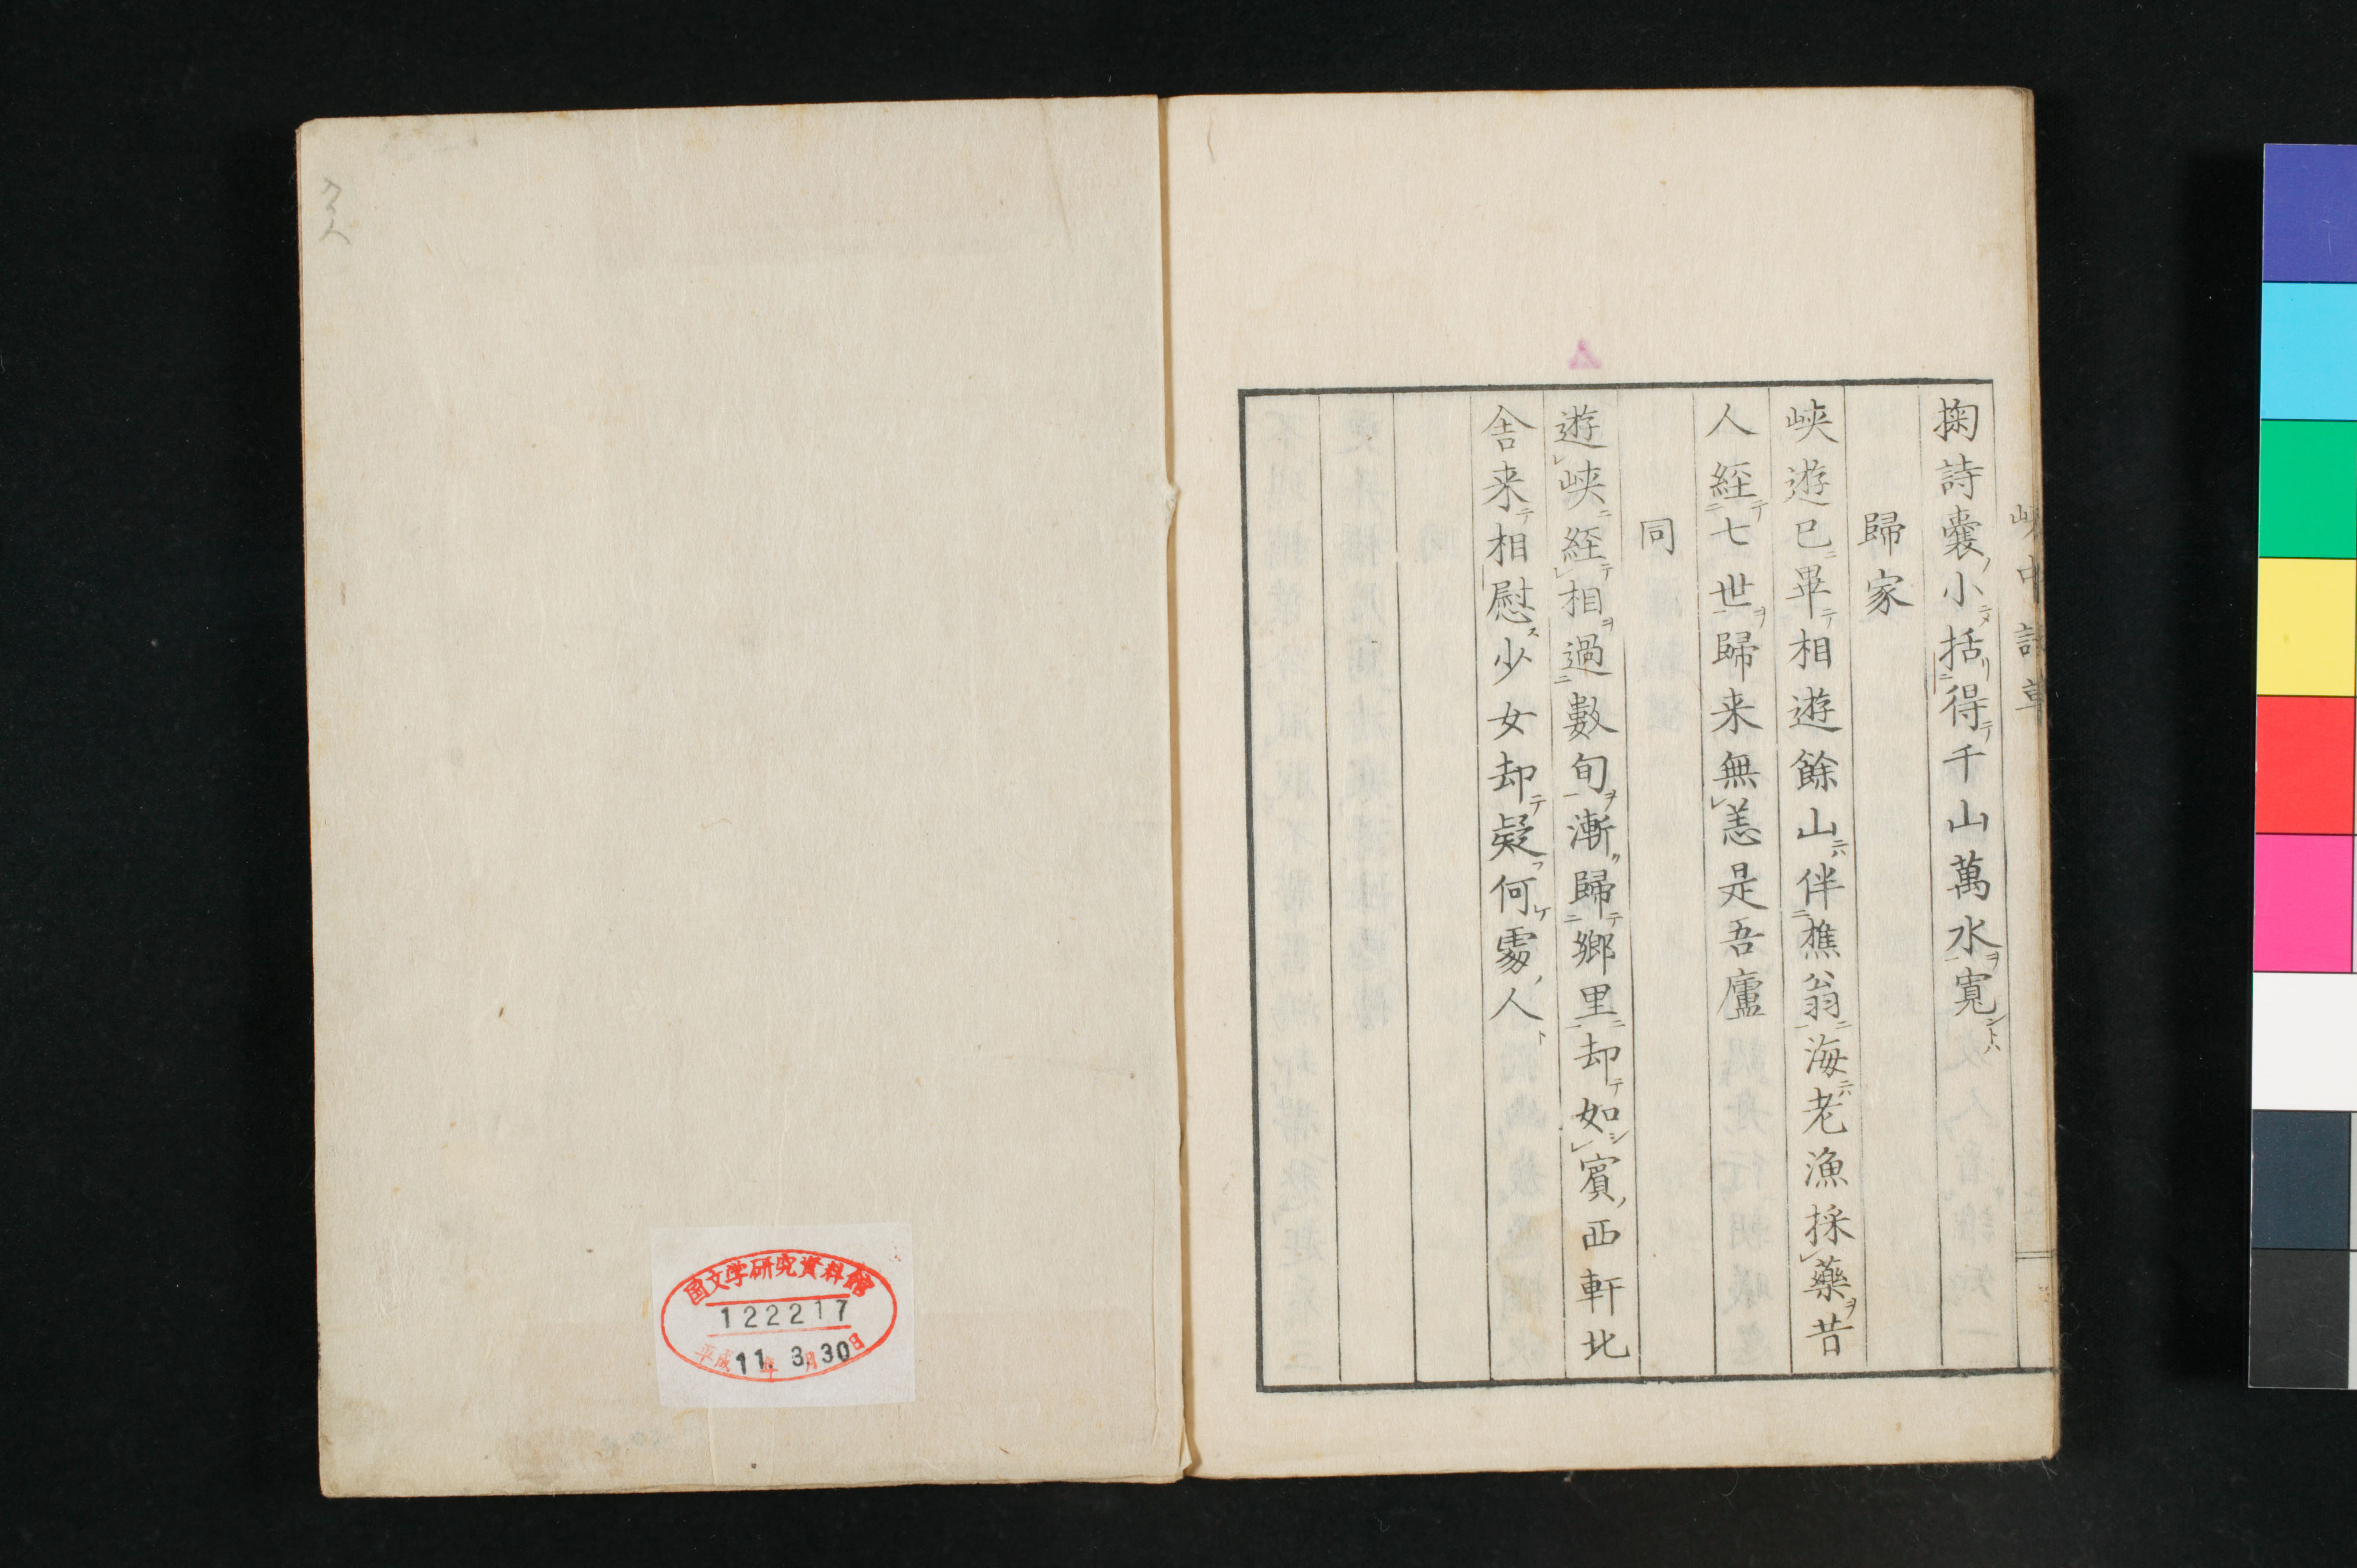 峽中詩草
掬詩囊小括得千山萬水寬
歸家
峽遊已畢相遊餘山伴樵翁海老漁採藥昔
人経七世歸来無恙是吾廬
同
遊峽経相過數旬漸歸鄉里却如賓西軒北
舍来相慰少女却疑何處人
国文学研究資料館
122217
平成11年3月30日